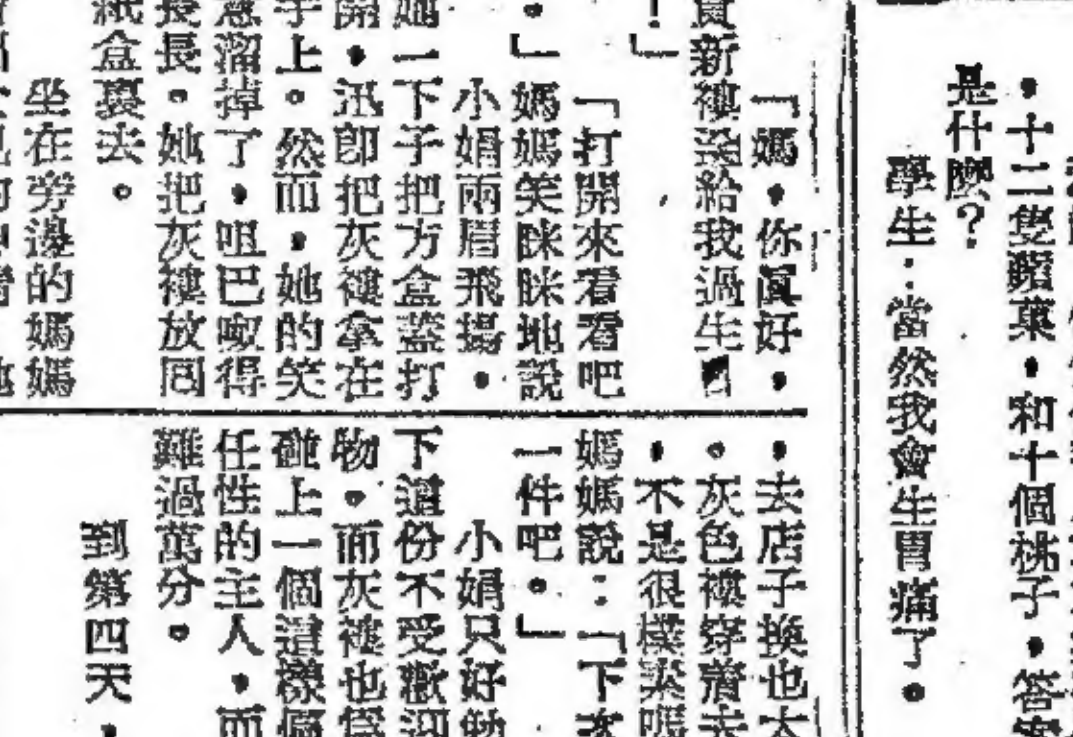 ・十二隻蘋菓・和十個桃子・答案
是什麼？
學生：當然我會生胃痛了。
「媽，你真好，
買新褸送給我過生
！」
「打開來看看吧
。」媽媽笑眯眯地說
小娟兩眉飛揚，
她一下子把方盒蓋打
開，迅即把灰褸拿在
手上。然而，她的笑
意溜掉了，咀巴噘得
長長。她把灰褸放回
紙盒裏去。
坐在旁邊的媽媽
，去店子換也太
。灰色褸穿着去
，不是很樸素嗎
媽媽說：「下次
一件吧。」
小娟只好勉
下這份不受歡迎
物。而灰褸也為
碰上一個這樣
任性的主人，而
難過萬分。
到第四天，